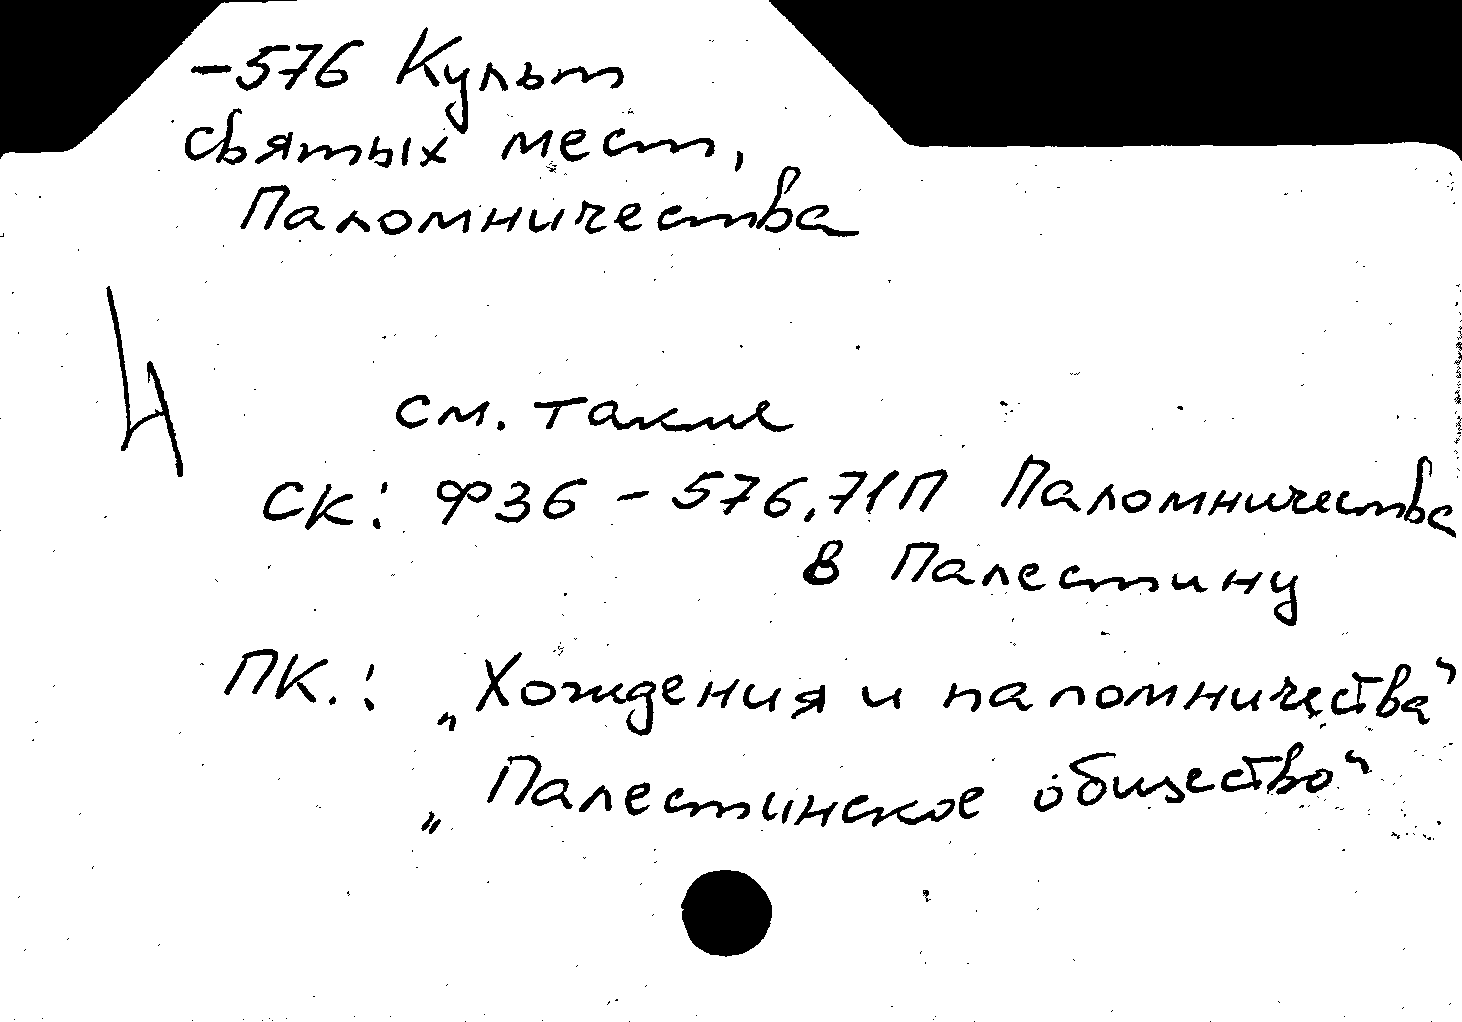 -576 Культ
святых мест,
Паломничества
4
см. также
СК: Ф36 - 576,71П Паломничества
в Палестину
ПК.: „Хождения и паломничества"
„Палестинское общество"